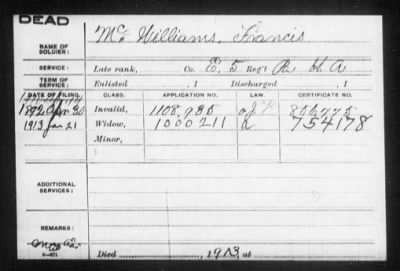 DEAD
NAME OF SOLDIER: Mc Williams, Francis
SERVICE: Late rank, Co. E, 5 Reg't R. H A
TERM OF SERVICE: Enlisted , 1 Discharged , 1
DATE OF FILING. CLASS. APPLICATION NO. LAW. CERTIFICATE NO.
1892 Apr 30 Invalid, 1108,985 856775
1913 Jan 21 Widow, 1000211 754178
Minor,
, 1
ADDITIONAL SERVICES:
REMARKS:
Died , 1913, at